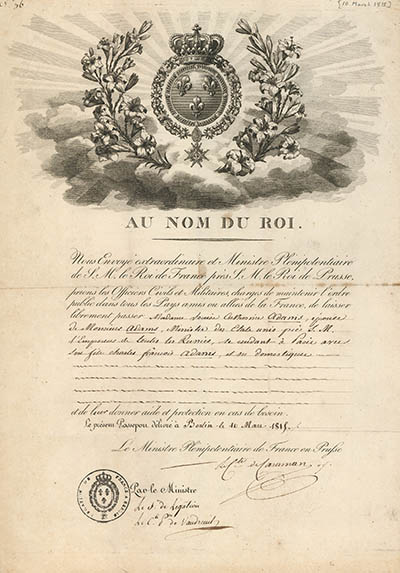 [10 March 1815]
AU NOM DU ROI.
Nous Envoyé extraordinaire et Ministre Plénipotentiaire
de S. M. le Roi de France près S. M. le Roi de Prusse,
prions les Officiers Civils et Militaires, chargés de maintenir l'ordre
public dans tous les Pays amis ou alliés de la France, de laisser
librement passer Madame Louise Catherine Adams, épouse
de Monsieur Adams, Ministre des Etats unis près S. M.
l'Empereur de toutes les Russies, se rendant à Paris avec
son fils charles françois Adams, et ses domestiques
et de leur donner aide et protection en cas de besoin.
Le présent Passeport délivré à Berlin le 10 Mars 1815.
Le Ministre Plénipotentiaire de France en Prusse
Le Cte de Caraman
Par le Ministre
Le S. de Légation
de Vaudreuil